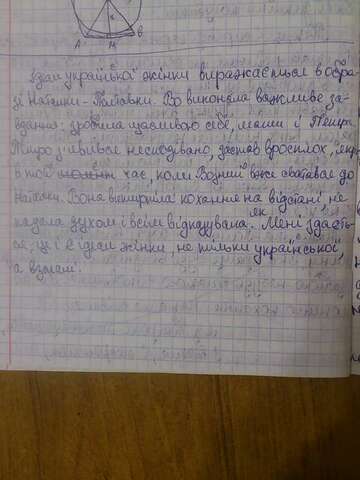 A M B
Ідеал української жінки виражається в обра
зі Наталки-Полтавки. Во виконала важливе за-
вдання: зробила щасливою себе, маму і Петра.
Петро з'явився несподівано, застав зненацька, якраз
в той час, коли Возний вже сватався до
Наталки. Вона витримала кохання на відстані, не
падала духом і всім відказувала. як Мені здаєть-
ся, це і є ідеал жінки, не тільки української,
а взагалі.